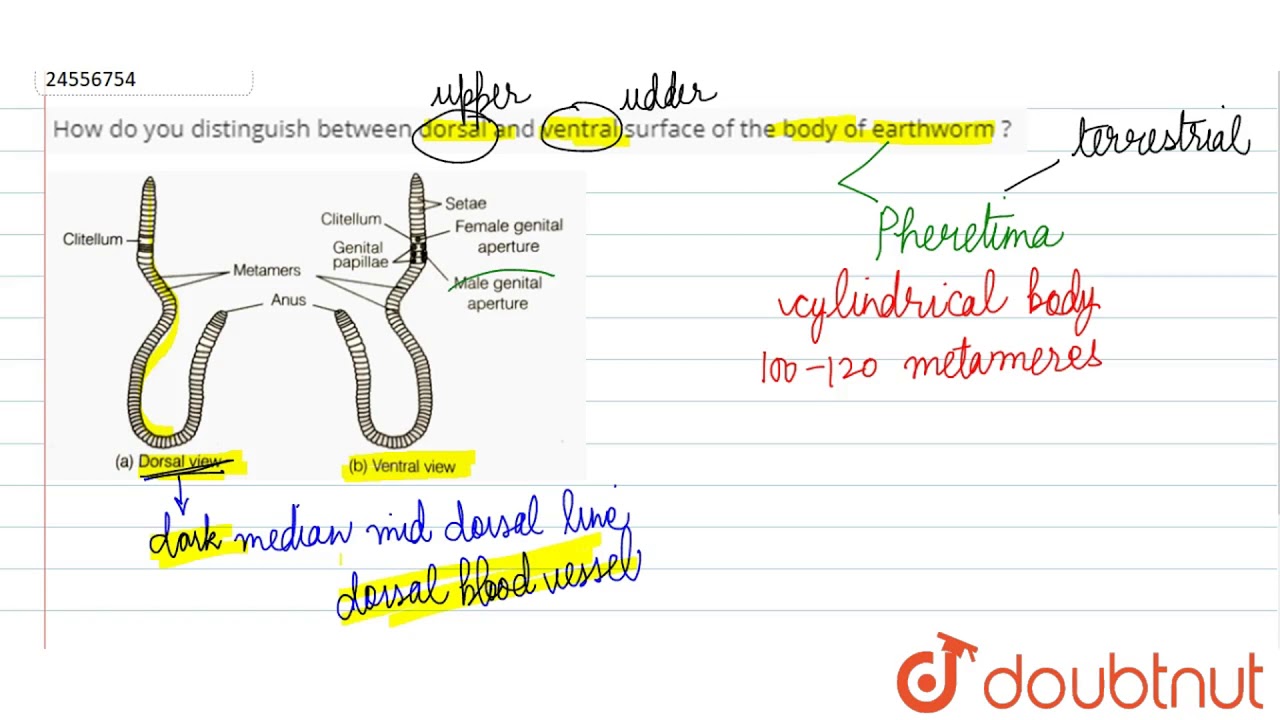 24556754
upper udder
How do you distinguish between dorsal and ventral surface of the body of earthworm ?
terrestrial
Pheretima
cylindrical body
100-120 metameres
Clitellum
Metamers
Anus
Clitellum
Genital
papillae
Setae
Female genital
aperture
Male genital
aperture
(a) Dorsal view
(b) Ventral view
dark median mid dorsal line,
dorsal blood vessel
doubtnut